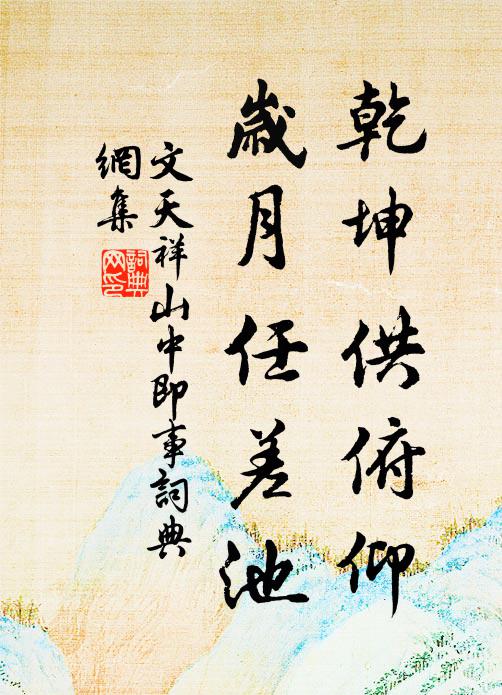 乾坤供俯仰
歲月任差池
文天祥山中即事詞典
網集
詞典
网印